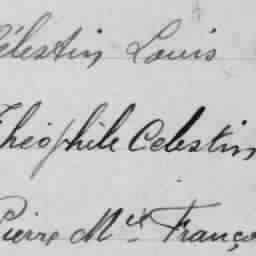 Célestin Louis
Théophile Celestin
Pierre M<sup>ie</sup> Franço